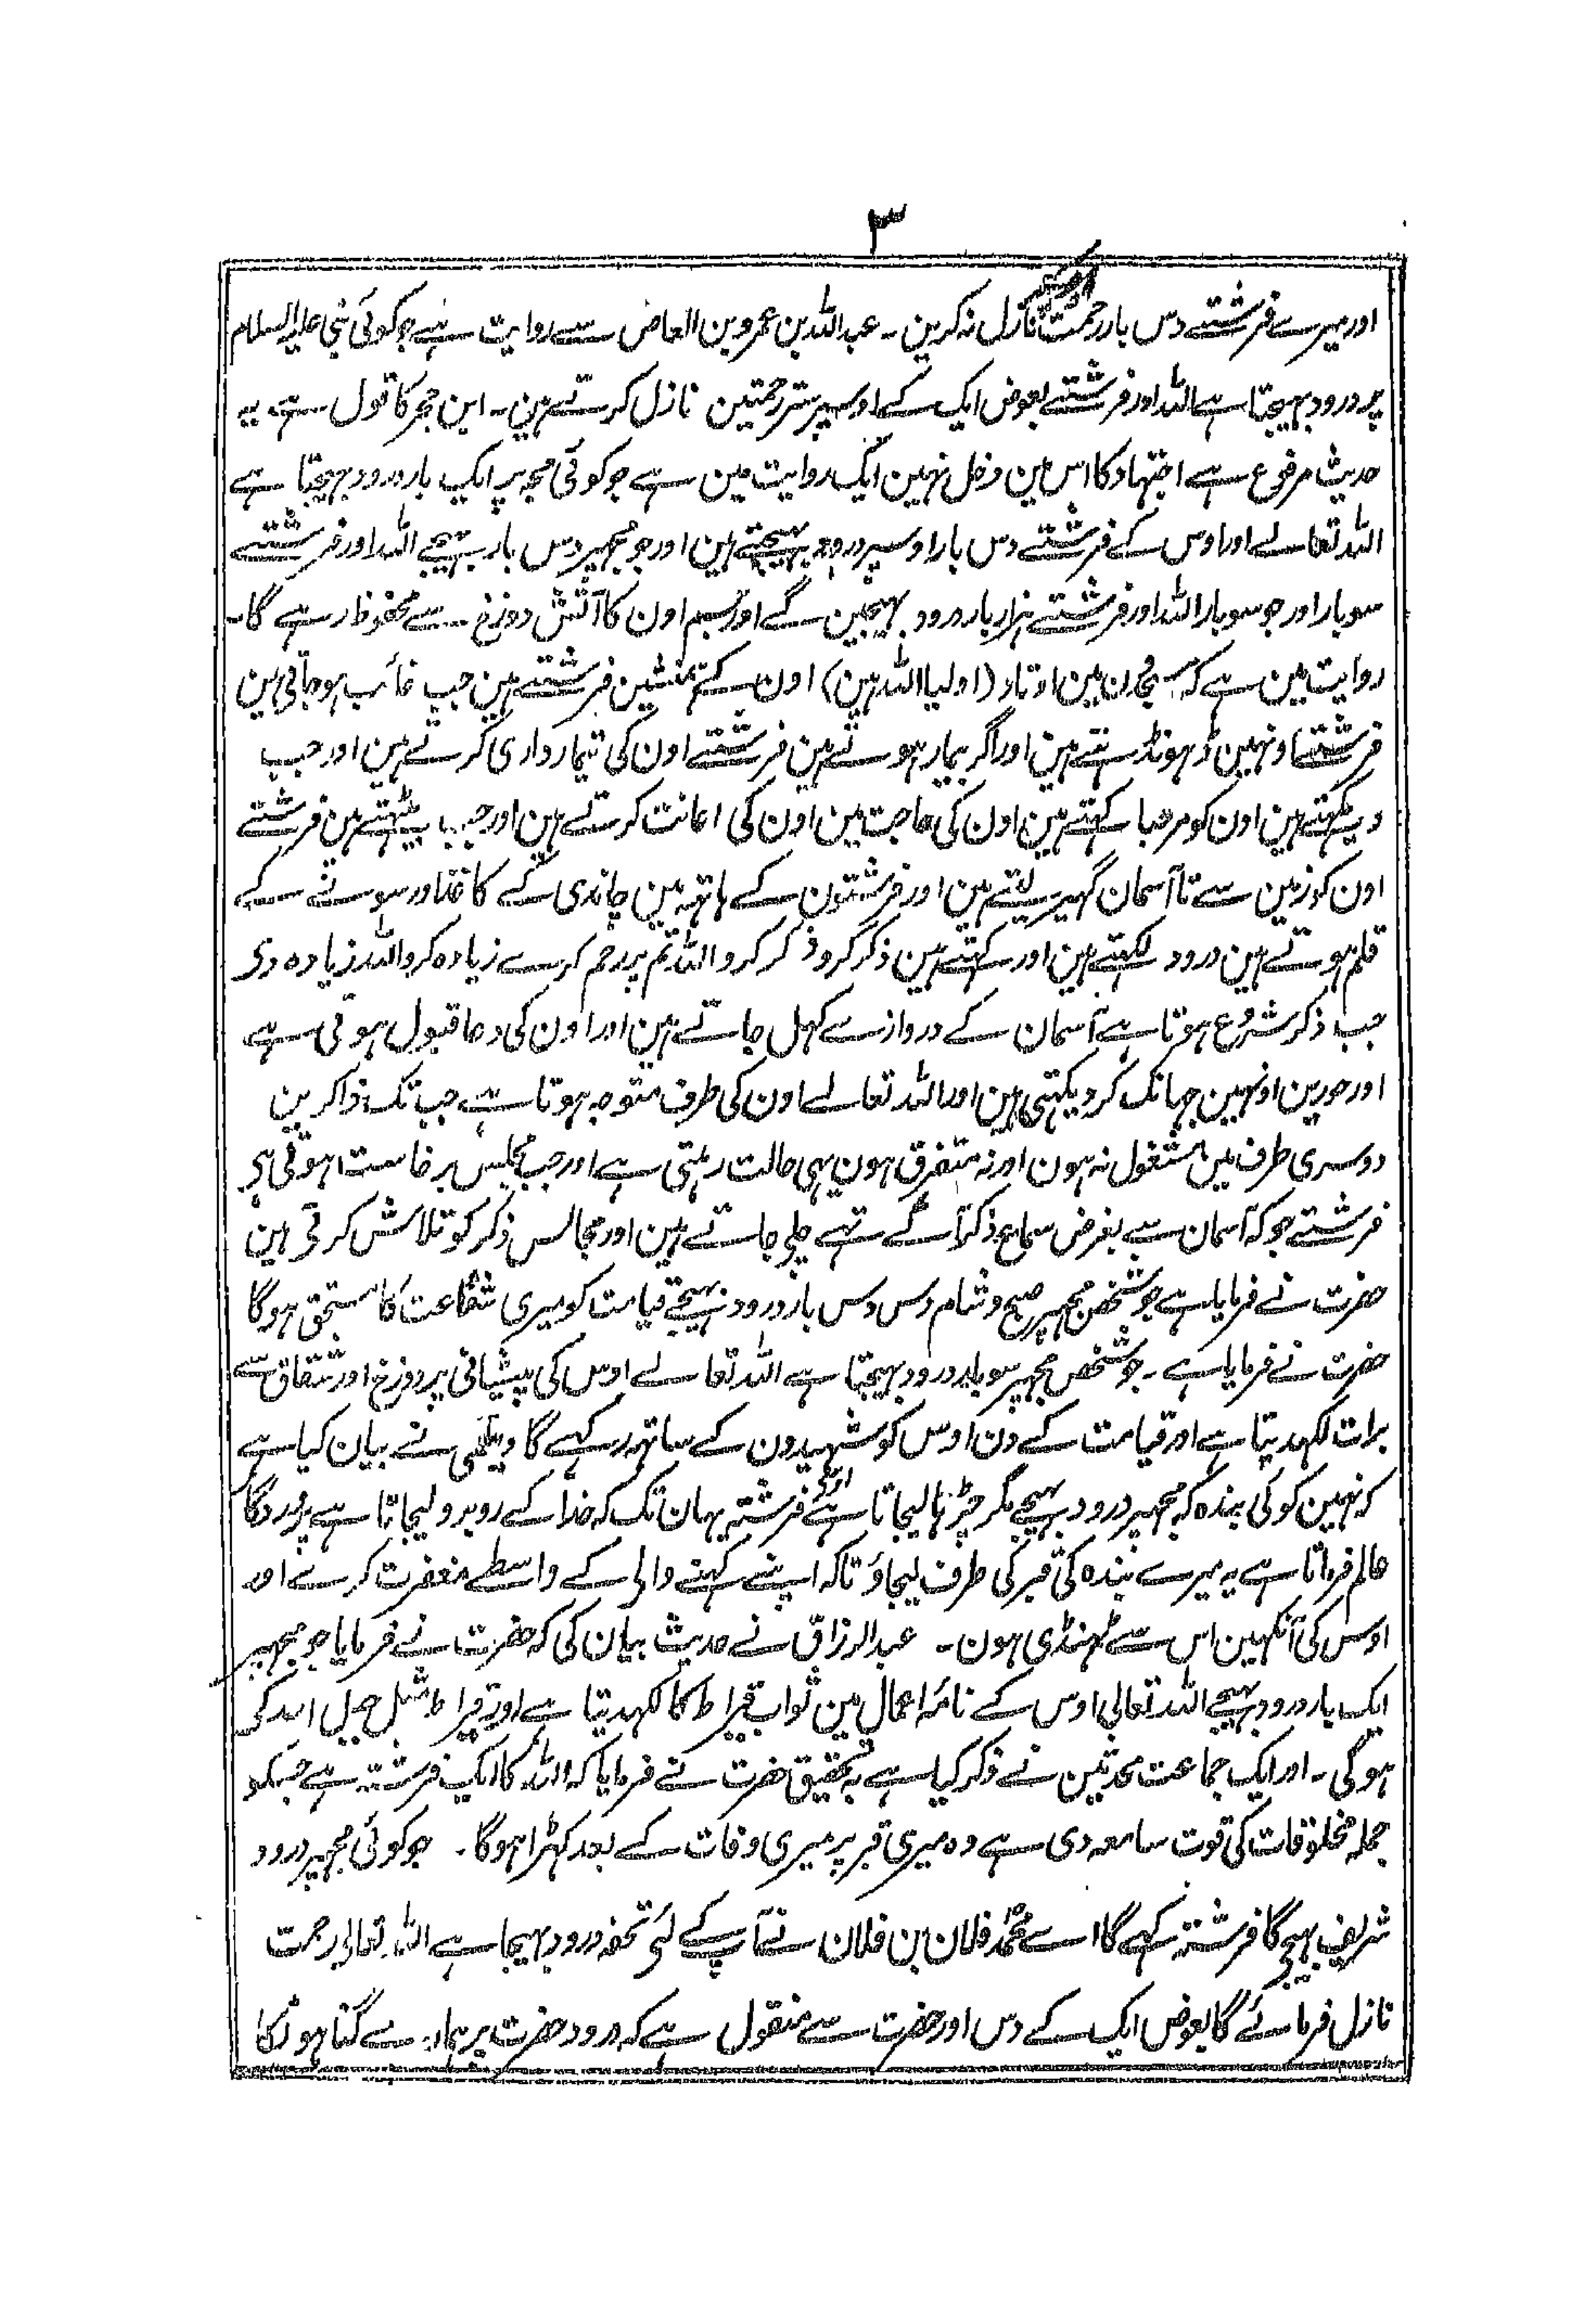 ۳
اور میرے فرشتے دس بار رحمت نازل نہ کرین ۔ عبداللہ بن عمرو بن العاص سے روایت ہے جو کوئی نبی علیہ السلام
پر درود بہیجتا ہے اللہ اور فرشتے بعوض ایک کے اوسپر ستر رحمتین نازل کرتے ہین ۔ ابن حجر کا قول ہے یہ
حدیث مرفوع ہے اجتہاد کا اس مین دخل نہین ایک روایت مین ہے جو کوئی مجہ پر ایک بار درود بہیجتا ہے
اللہ تعالے اور اوس کے فرشتے دس بار اوسپر درود بہیجتے ہین اور جو مجہپر دس بار بہیجے اللہ اور فرشتے
سو بار اور جو سو بار اللہ اور فرشتے ہزار بار درود بہیجین گے اور جسم اون کا آتش دوزخ سے محفوظ رہے گا ۔
روایت مین ہے کہ مسجدن مین اوتاد (اولیا اللہ ہین) اون کے ہمنشین فرشتے ہین جب غائب ہو جاتی ہین
فرشتے اونہین ڈہونڈہتے ہین اور اگر بیمار ہوتے ہین فرشتے اون کی تیمارداری کرتے ہین اور جب
دیکہتے ہین اون کو مرحبا کہتے ہین اون کی حاجت مین اون کی اعانت کرتے ہین اور جب بیٹہتے ہین فرشتے
اون کو زمین سے تا آسمان گہیر لیتے ہین اور فرشتون کے ہاتہہ مین چاندی کے کاغذ اور سونے کے
قلم ہوتے ہین درود لکہتے ہین اور کہتے ہین ذکر کرو ذکر کرو اللہ تم پر رحم کرے زیادہ کرو اللہ زیادہ دی
جب ذکر شروع ہوتا ہے آسمان کے دروازے کہل جاتے ہین اور اون کی دعا قبول ہوتی ہے
اور حورین اونہین جہانک کر دیکہتی ہین اور اللہ تعالے اون کی طرف متوجہ ہوتا ہے جب تک ذاکرین
دوسری طرف مین مشغول نہ ہون اور نہ متفرق ہون یہی حالت رہتی ہے اور جب مجلس برخاست ہوتی ہی
فرشتے جو کہ آسمان سے بغرض سماع ذکر آئے تہے چلی جاتے ہین اور مجالس ذکر کو تلاش کرتی ہین
حضرت نے فرمایا ہے جو شخص مجہپر صبح و شام دس دس بار درود بہیجے قیامت کو میری شفاعت کا مستحق ہوگا
حضرت نے فرمایا ہے ۔ جو شخص مجہپر سو بار درود بہیجتا ہے اللہ تعالے اوس کی پیشانی پر دوزخ اور نفاق سے
برات لکہدیتا ہے اور قیامت کے دن اوس کو شہیدون کے ساتہہ رکہے گا دیلمی نے بیان کیا ہے
کہ نہین کوئی بندہ کہ مجہپر درود بہیجے مگر چڑہا لیجاتا ہے اوسکو فرشتہ یہان تک کہ خدا کے روبرو لیجاتا ہے پروردگا
عالم فرماتا ہے یہ میرے بندہ کی قبر کی طرف لیجاؤ تاکہ اپنے کہنے والی کے واسطے مغفرت کرے اور
اوس کی آنکہین اس سے ٹہنڈی ہون ۔ عبدالرزاق نے حدیث بیان کی کہ حضرت نے فرمایا جو مجہپر
ایک بار درود بہیجے اللہ تعالی اوس کے نامۂ اعمال مین ثواب قیراط کا لکہدیتا ہے اور قیراط مثل جبل احد کی
ہو گی ۔ اور ایک جماعت محدثین نے ذکر کیا ہے بہ تحقیق حضرت نے فرمایا کہ اللہ کا ایک فرشتہ ہے جسکو
جملہ مخلوقات کی قوت سامعہ دی ہے وہ میری قبر پر میری وفات کے بعد کہڑا ہوگا ۔ جو کوئی مجہپر درود
شریف بہیجی گا فرشتہ کہے گا اے محمدؐ فلان بن فلان نے آپ کے لئی تحفہ درود بہیجا ہے اللہ تعالی رحمت
نازل فرمائے گا بعوض ایک کے دس اور حضرت سے منقول ہے کہ درود حضرت پر ہمارے گناہونکا